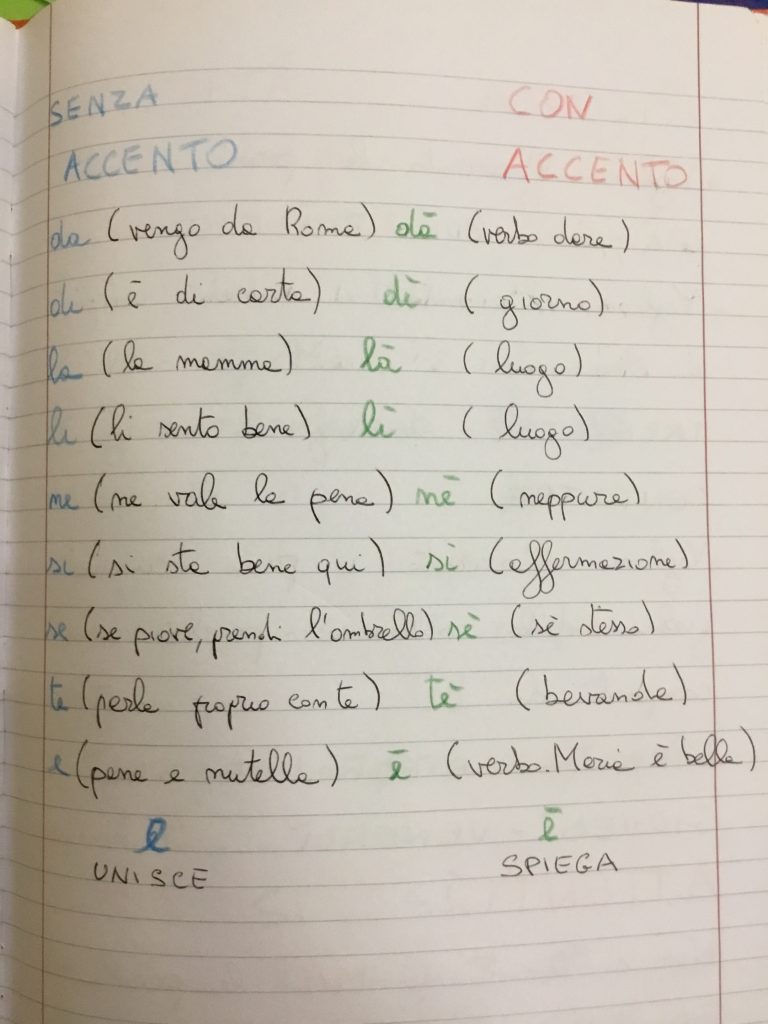 SENZA CON
ACCENTO ACCENTO
da (vengo da Roma) dà (verbo dare)
di (è di carta) dì (giorno)
la (la mamma) là (luogo)
li (li sento bene) lì (luogo)
ne (ne vale la pena) nè (neppure)
si (si sta bene qui) sì (affermazione)
se (se piove, prendi l'ombrello) sè (sè stesso)
te (parla proprio con te) tè (bevanda)
e (pane e nutella) è (verbo. Maria è bella)
e è
UNISCE SPIEGA